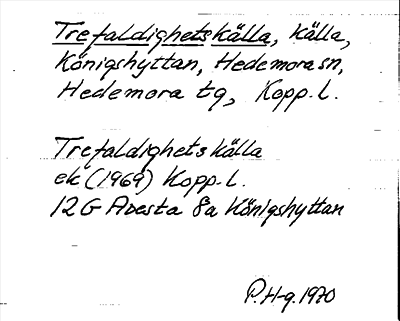 Trefaldighetskälla, källa,
Königshyttan, Hedemora sn,
Hedemora tg, Kopp. l.
Trefaldighetskälla
ek (1969) Kopp. l.
12G Avesta 8a Königshyttan
P.H-g. 1970